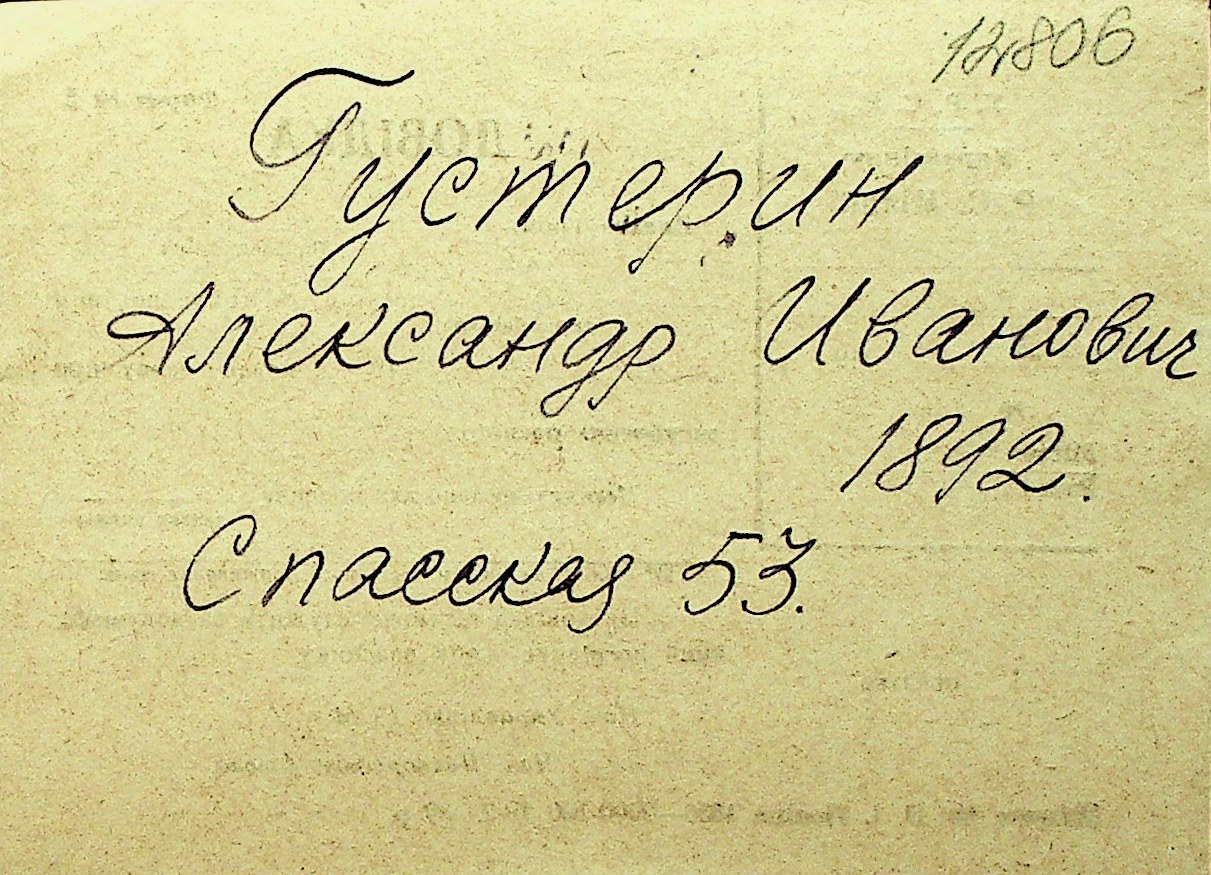 12806
Густерин
Александр Иванович
1892.
Спасская 53.